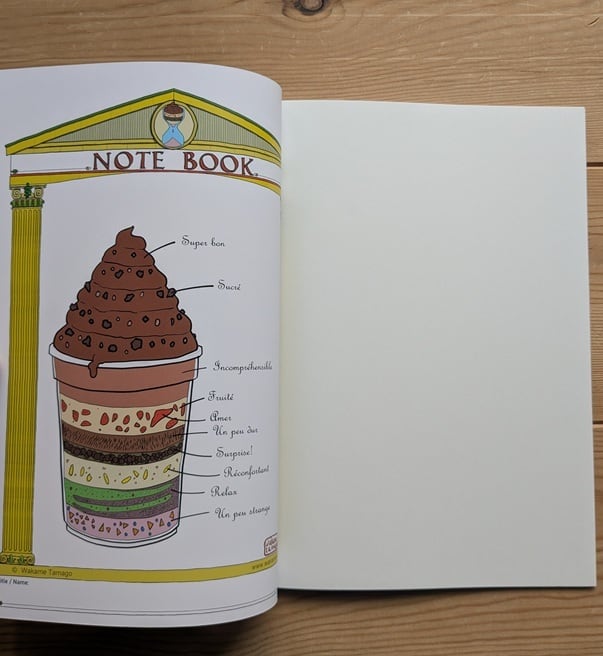 NOTE BOOK
Super bon
Sucré
Incompréhensible
Fruité
Amer
Un peu dur
Surprise!
Réconfortant
Relax
Un peu strange
© Wakame Tamago
www.
Title / Name: